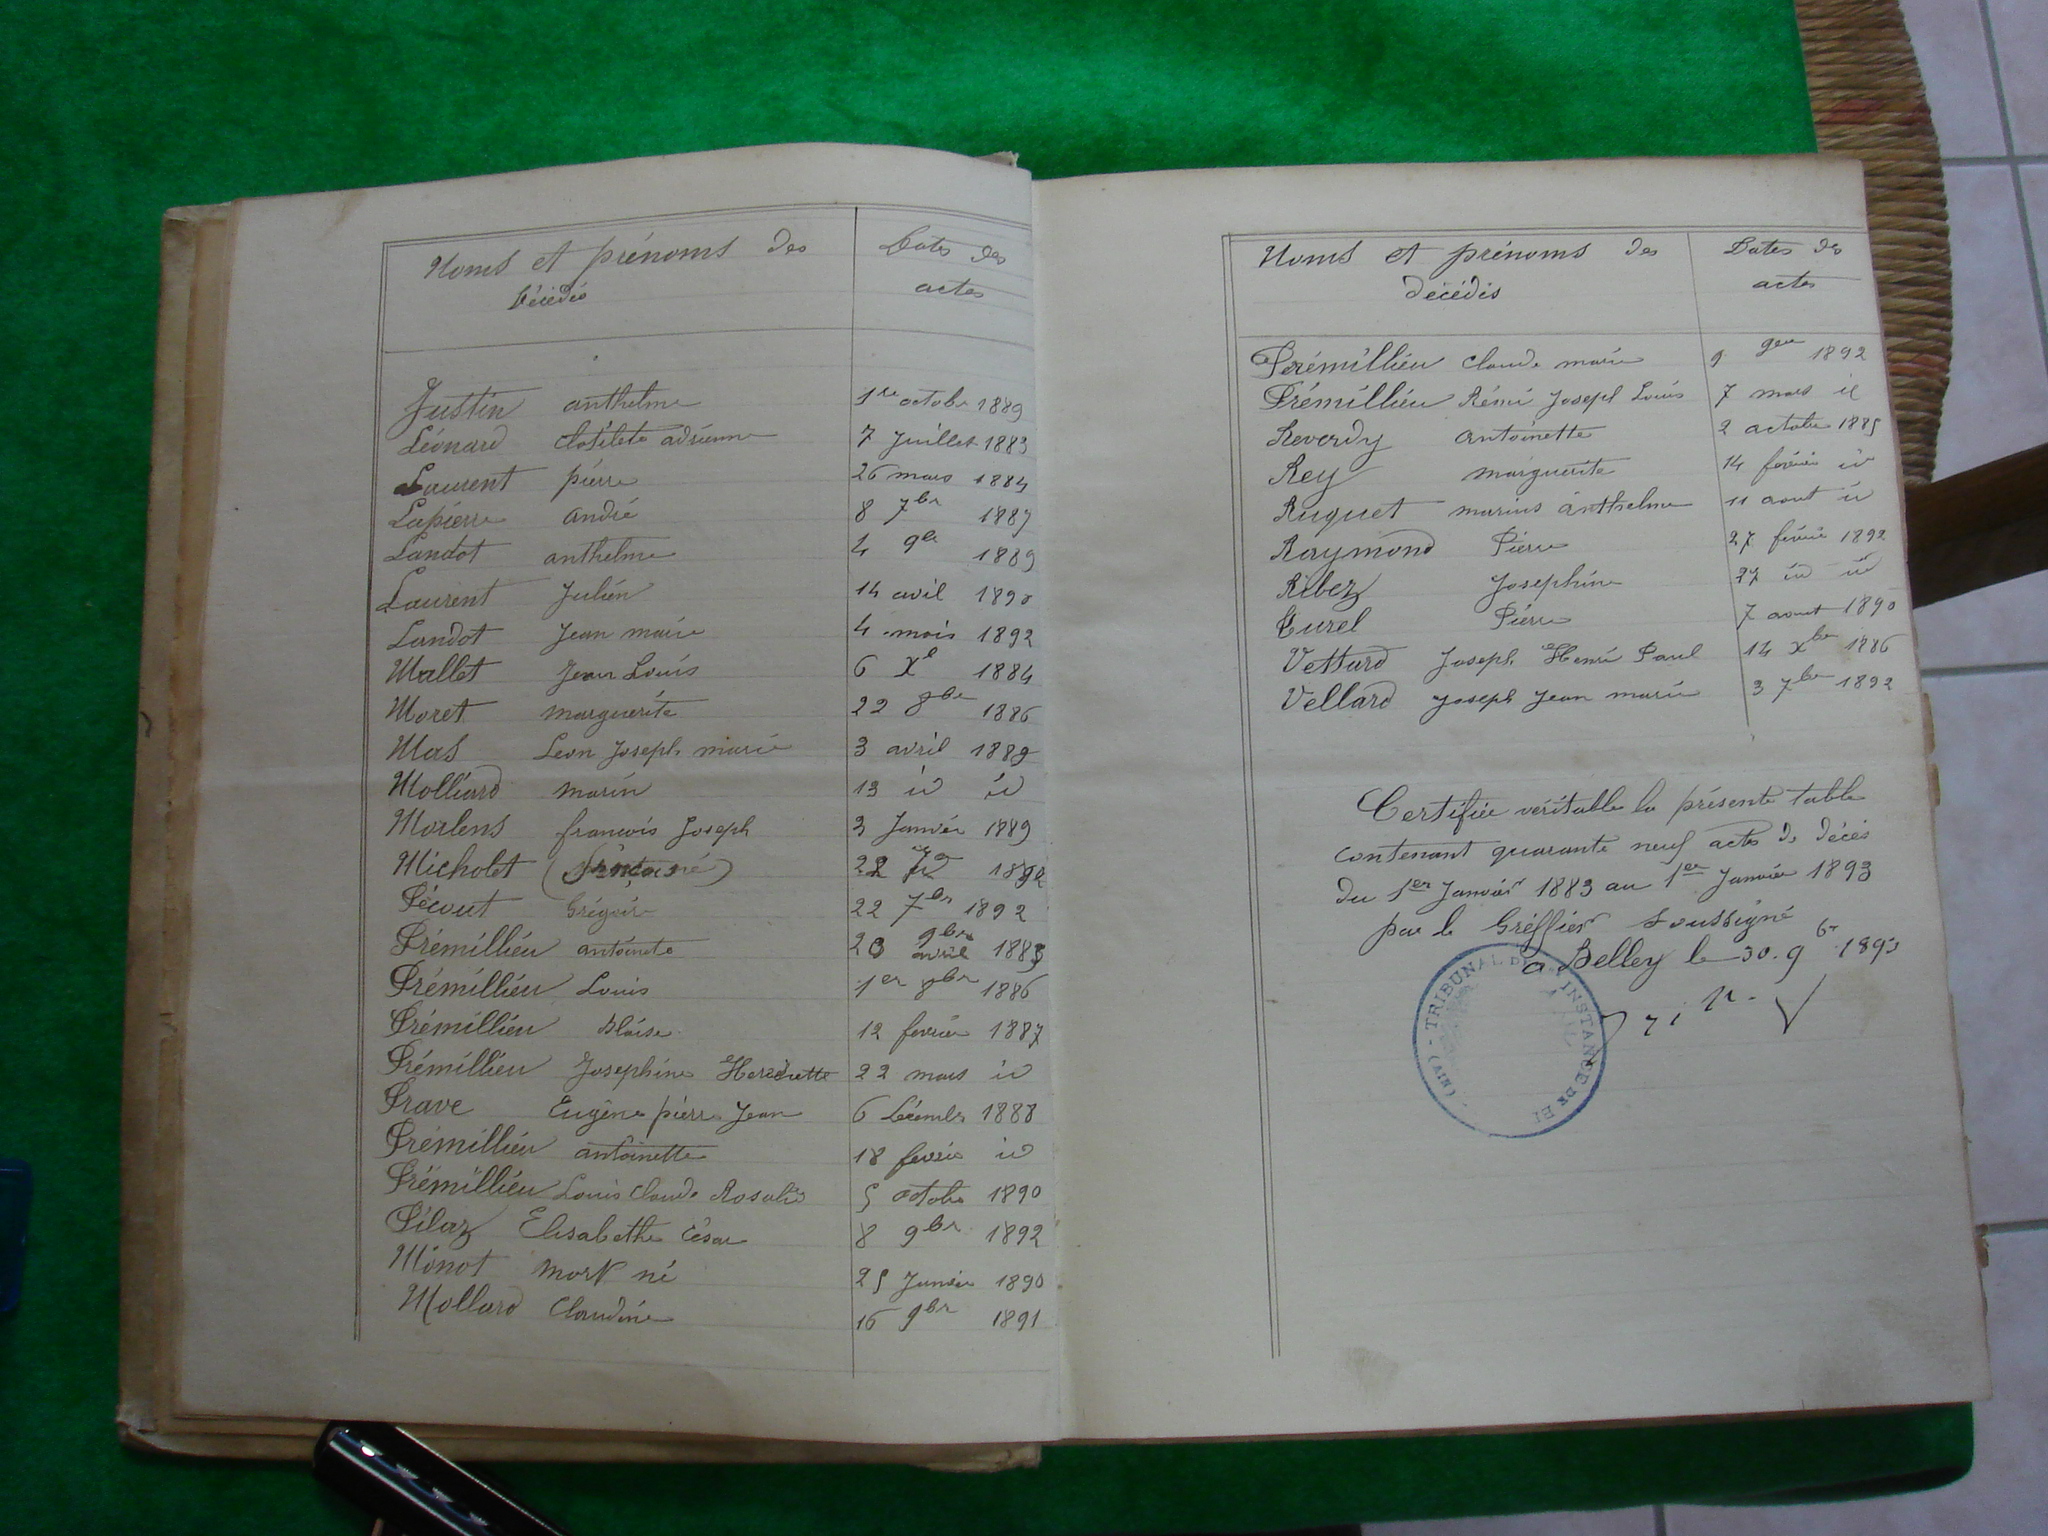 Noms et prénoms des
décédés
Dates des
actes
Justin anthelme 1er octobre 1889
Léonard Clotilete adrienne 7 Juillet 1883
Laurent pierre 26 mars 1884
Lapierre andré 8 7bre 1887
Landot anthelme 4 9bre 1889
Laurent Julien 14 avril 1890
Landot Jean marie 4 mois 1892
Mallet Jean Louis 6 Xb 1884
Moret marguerite 22 8bre 1886
Mas Leon Joseph marie 3 avril 1889
Molliard marin 13 id id
Morlens francois Joseph 3 Janvier 1889
Micholet 22
Pécout Grégoire 22 7bre 1892
Prémillieu antoinete 9bre 1883
Prémillieu Louis 1er 8bre 1886
Prémillieu Blaise 12 fevrier 1887
Prémillieu Josephine Henriette 22 mars id
Prave Eugène pierre Jean 6 Décembre 1888
Prémillieu antoinette 18 fevrier id
Prémillieu Louis Claude Rosalie 5 octobre 1890
Pilaz Elisabethe César 8 9bre 1892
Minot mort né 25 Janvier 1890
Mollard Claudine 16 9bre 1891
Noms et prénoms des
décédés
Dates des
actes
Prémillieu Claude marie 9 9bre 1892
Prémillieu Rémi Joseph Louis 7 mars id
Reverdy antoinette 2 octobre 1885
Rey marguerite 14 fevrier id
Ruguet marius anthelme 11 aout id
Raymond Pierre 27 février 1892
Ribez Josephine 27 id id
Curel Pierre 7 aout 1890
Vettard Joseph Henri Paul 14 Xbre 1886
Vellard Joseph Jean marie 3 7bre 1892
Certifiée véritable la présente table
contenant quarante neuf actes de décès
du 1er Janvier 1883 au 1er Janvier 1893
par le Greffier soussigné
a Belley le 30. 9br 1893
TRIBUNAL INSTANCE DE